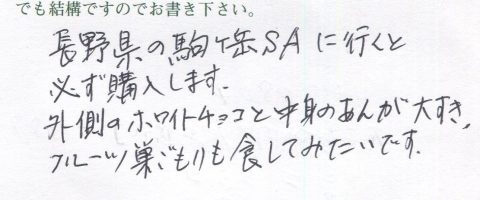 でも結構ですのでお書き下さい。
長野県の駒ヶ岳SAに行くと
必ず購入します.
外側のホワイトチョコと中身のあんが大すき,
フルーツ巣ごもりも食してみたいです.